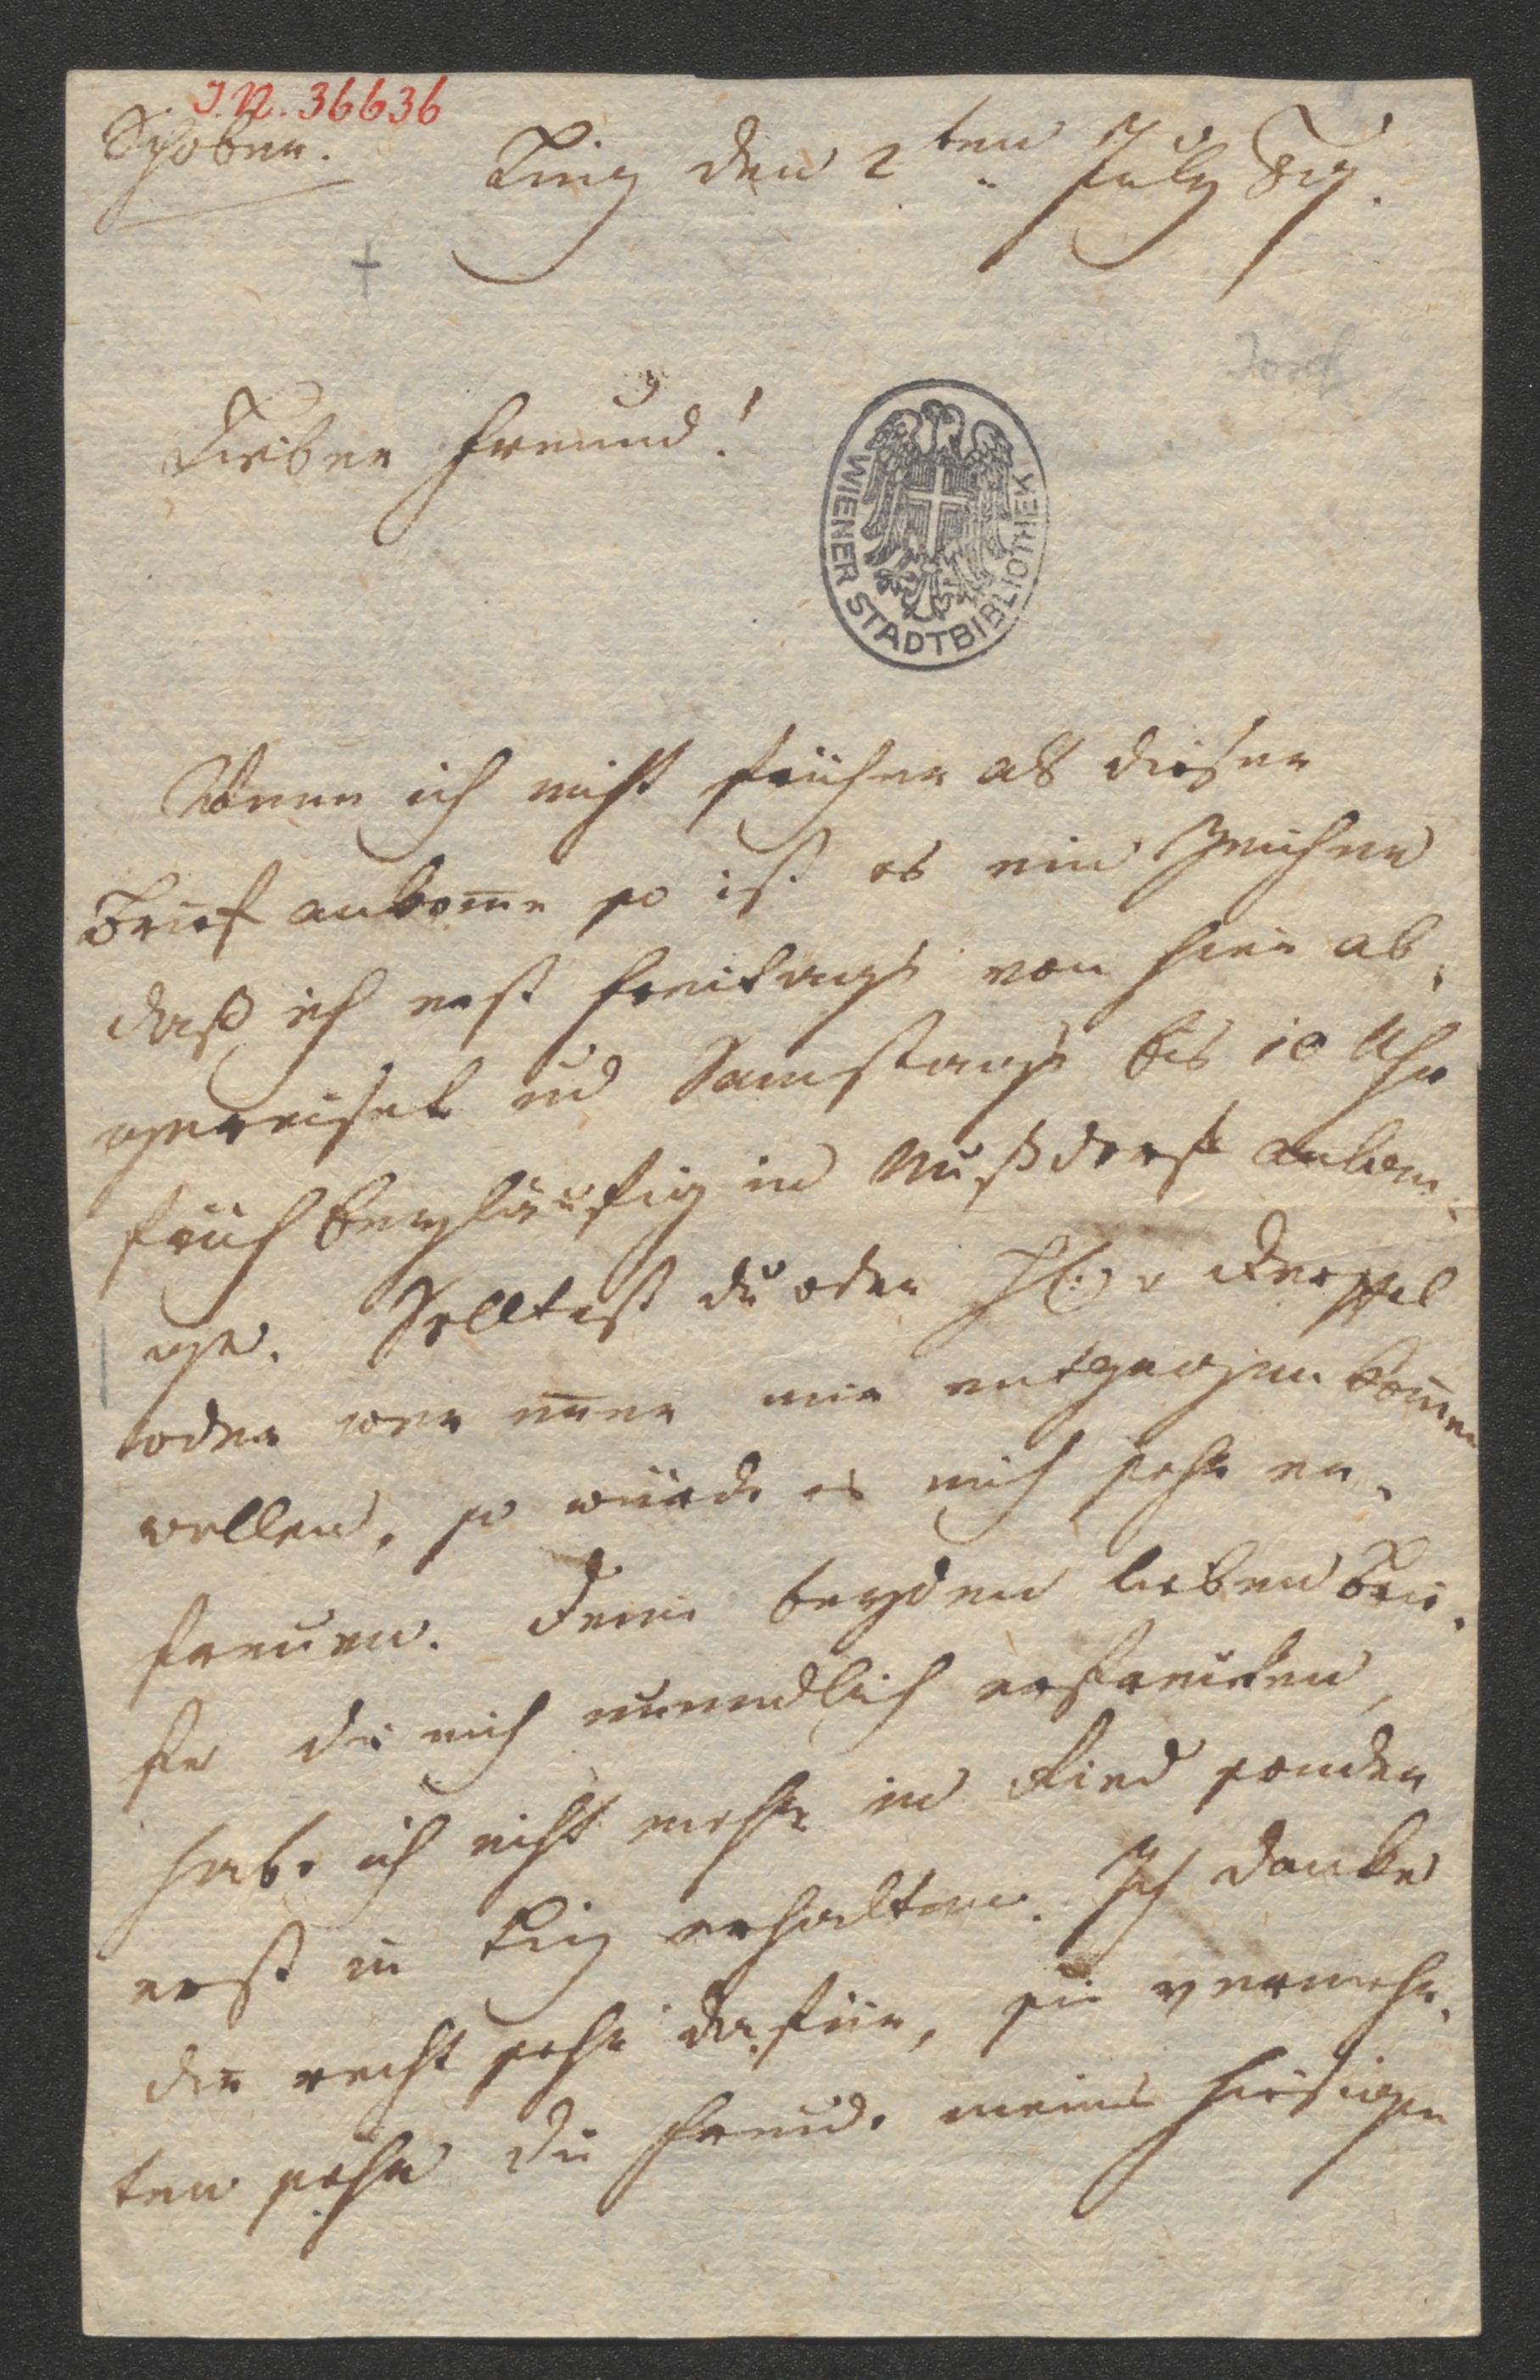 I.N. 36636
Schober.
Linz den 2ten July
Josef
Lieber Freund!
WIENER STADTBIBLIOTHEK
Wenn ich nicht früher als dieser
Brief ankom̄e so ist es ein Zeichen
daß ich erst Freitags von hier ab-
gereiset und Samstags bis 10 Uhr
früh beyläufig in Nußdorf ankom-
me. Solltest du oder
oder wer im̄er mir entgegen kom̄en
wollen, so würde es mich sehr er-
freuen. Deine beyden lieben Brie-
fe die mich unendlich erfreuten,
habe ich nicht mehr in Ried sonder
erst in Linz erhalten. Ich danke
dir recht sehr dafür, sie vermehr-
ten sehr die Freude meines hiesigen